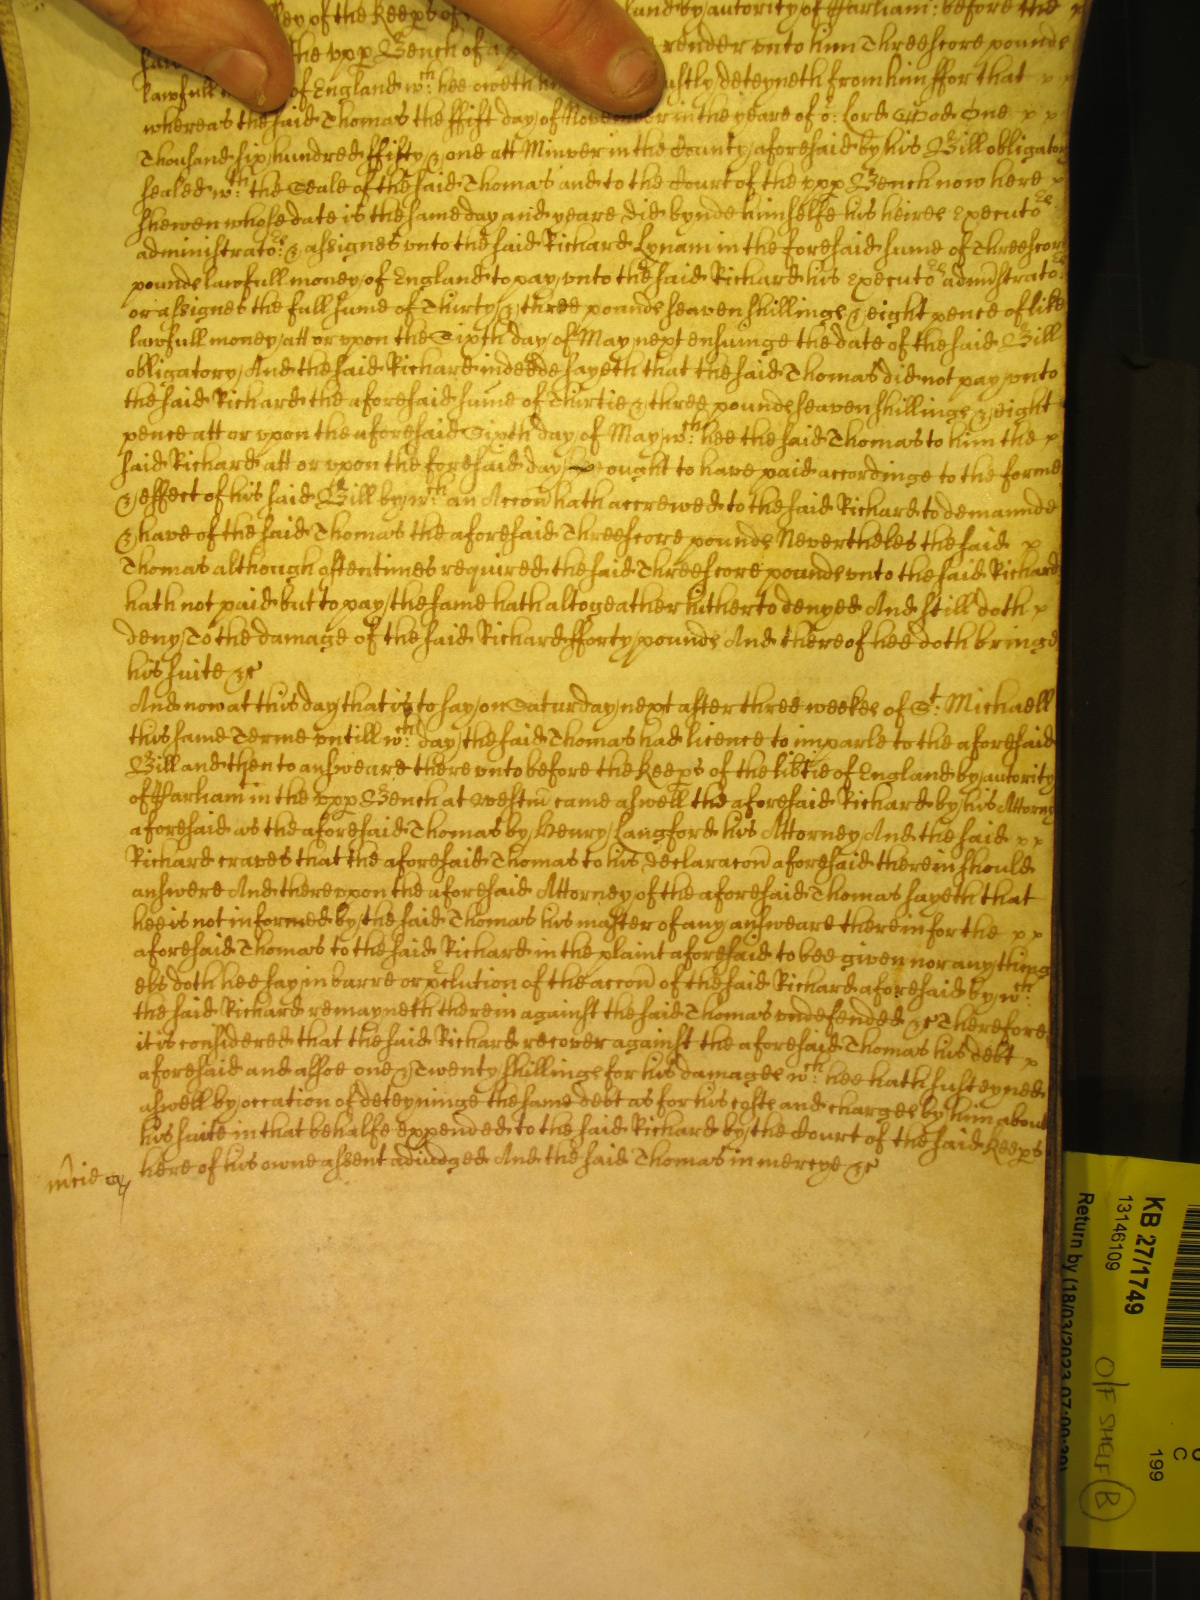 ey of the Keeps of land by autority of Parliam: before the
the upp Bench of render unto him Threescore pounds
lawfull of England wch: hee oweth ustly deteyneth from him ffor that
whereas the said Thomas the ffift day of November in the yeare of or: Lord God One
Thousand six hundred ffifty & one att Minver in the County aforesaid by his Bill obligatory
sealed wth: the Seale of the said Thomas and to the Court of the upp Bench now here
shewen whose date is the same day and yeare did bynde himselfe his heires Executors
administrators: & assignes unto the said Richard Lynam in the foresaid sume of Threescore
pounds lawfull money of England to pay unto the said Richard his Executors administrators:
or assignes the full sume of Thirty & three pounds seaven shillings & eight pence of like
lawfull money att or upon the Sixth day of May next ensuinge the date of the said Bill
obligatory And the said Richard indeede sayeth that the said Thomas did not pay unto
the said Richard the aforesaid sume of Thirtie & three pounds seaven shillings & eight
pence att or upon the aforesaid Sixth day of May wch: hee the said Thomas to him the
said Richard att or upon the foresaid day ought to have paid accordinge to the forme
& effect of his said Bill by wch: an Accon hath accrewed to the said Richard to demaunde
& have of the said Thomas the aforesaid Threescore pounds Nevertheles the said
Thomas although oftentimes required the said Threescore pounds unto the said Richard
hath not paid but to pay the same hath altogeather hitherto denyed And still doth
deny To the damage of the said Richard fforty pounds And thereof hee doth bringe
his suite &c
And now at this day that is to say on Saturday next after three weekes of St: Michaell
this same Terme untill wch: day the said Thomas had licence to imparle to the aforesaid
Bill and then to answeare thereunto before the Keeps of the libtie of England by autority
of Parliam in the upp Bench at Westm came aswell the aforesaid Richard by his Attorny
aforesaid as the aforesaid Thomas by Henry Langford his Attorney And the said
Richard craves that the aforesaid Thomas to his declaracon aforesaid therein should
answere And thereupon the aforesaid Attorney of the aforesaid Thomas sayeth that
hee is not informed by the said Thomas his master of any answeare therein for the
aforesaid Thomas to the said Richard in the plaint aforesaid to bee given nor any thing
els doth hee say in barre or pclution of the accon of the said Richard aforesaid by wch:
the said Richard remayneth therein against the said Thomas undefended &c Therefore
it is considered that the said Richard recover against the aforesaid Thomas his debt
aforesaid and alsoe one & Twenty shillings for his damages wch: hee hath susteyned
aswell by occation of deteyninge the same debt as for his costs and charges by him about
his suite in that behalfe expended to the said Richard by the Court of the said Keeps
here of his owne assent adiudged And the said Thomas in mercye &c
mcie
KB 27/1749
13146109
Return by (18/03/2023 07:00:
O/F SHELF B
C
199